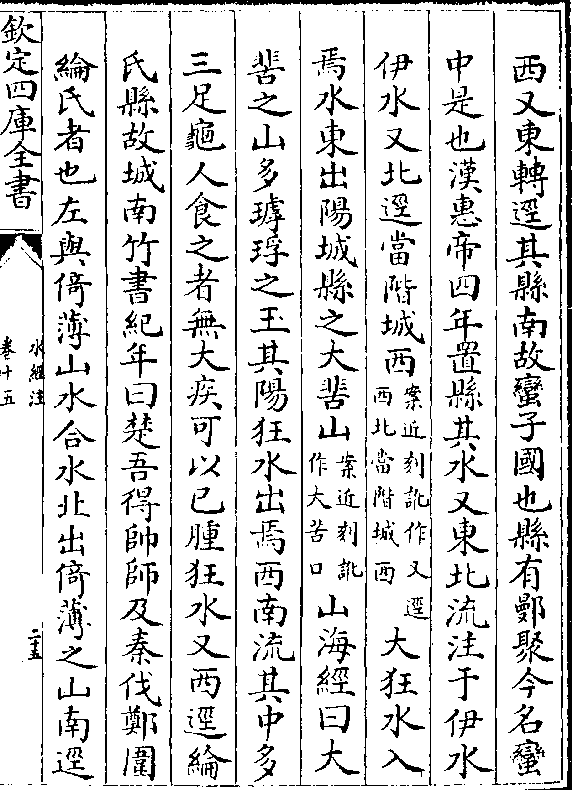 西又東轉逕其縣南故蠻子國也縣有鄤聚今名蠻
中是也漢惠帝四年置縣其水又東北流注于伊水
伊水又北逕當階城西案近刻訛作又逕西北當階城西大狂水入
焉水東出陽城縣之大𦱤山案近刻訛作大苦口山海經曰大
𦱤之山多㻬琈之玉其陽狂水出焉西南流其中多
三足龜人食之者無大疾可以已腫狂水又西逕綸
氏縣故城南竹書紀年曰楚吾得帥師及秦伐鄭圍
綸氏者也左與倚薄山水合水北出倚薄之山南逕
欽定四庫全書
水經注
卷十五
二十五